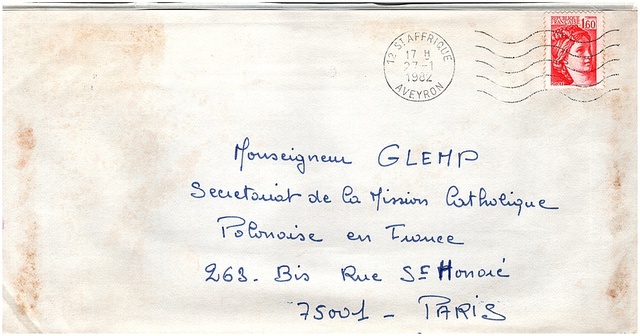 12 ST AFFRIQUE
17 H
27-1
1982
AVEYRON
REPUBLIQUE
FRANÇAISE
1,60
Monseigneur GLEMP
Secretariat de la Mission Catholique
Polonaise en France
263. Bis Rue St Honoré
75001 - PARIS